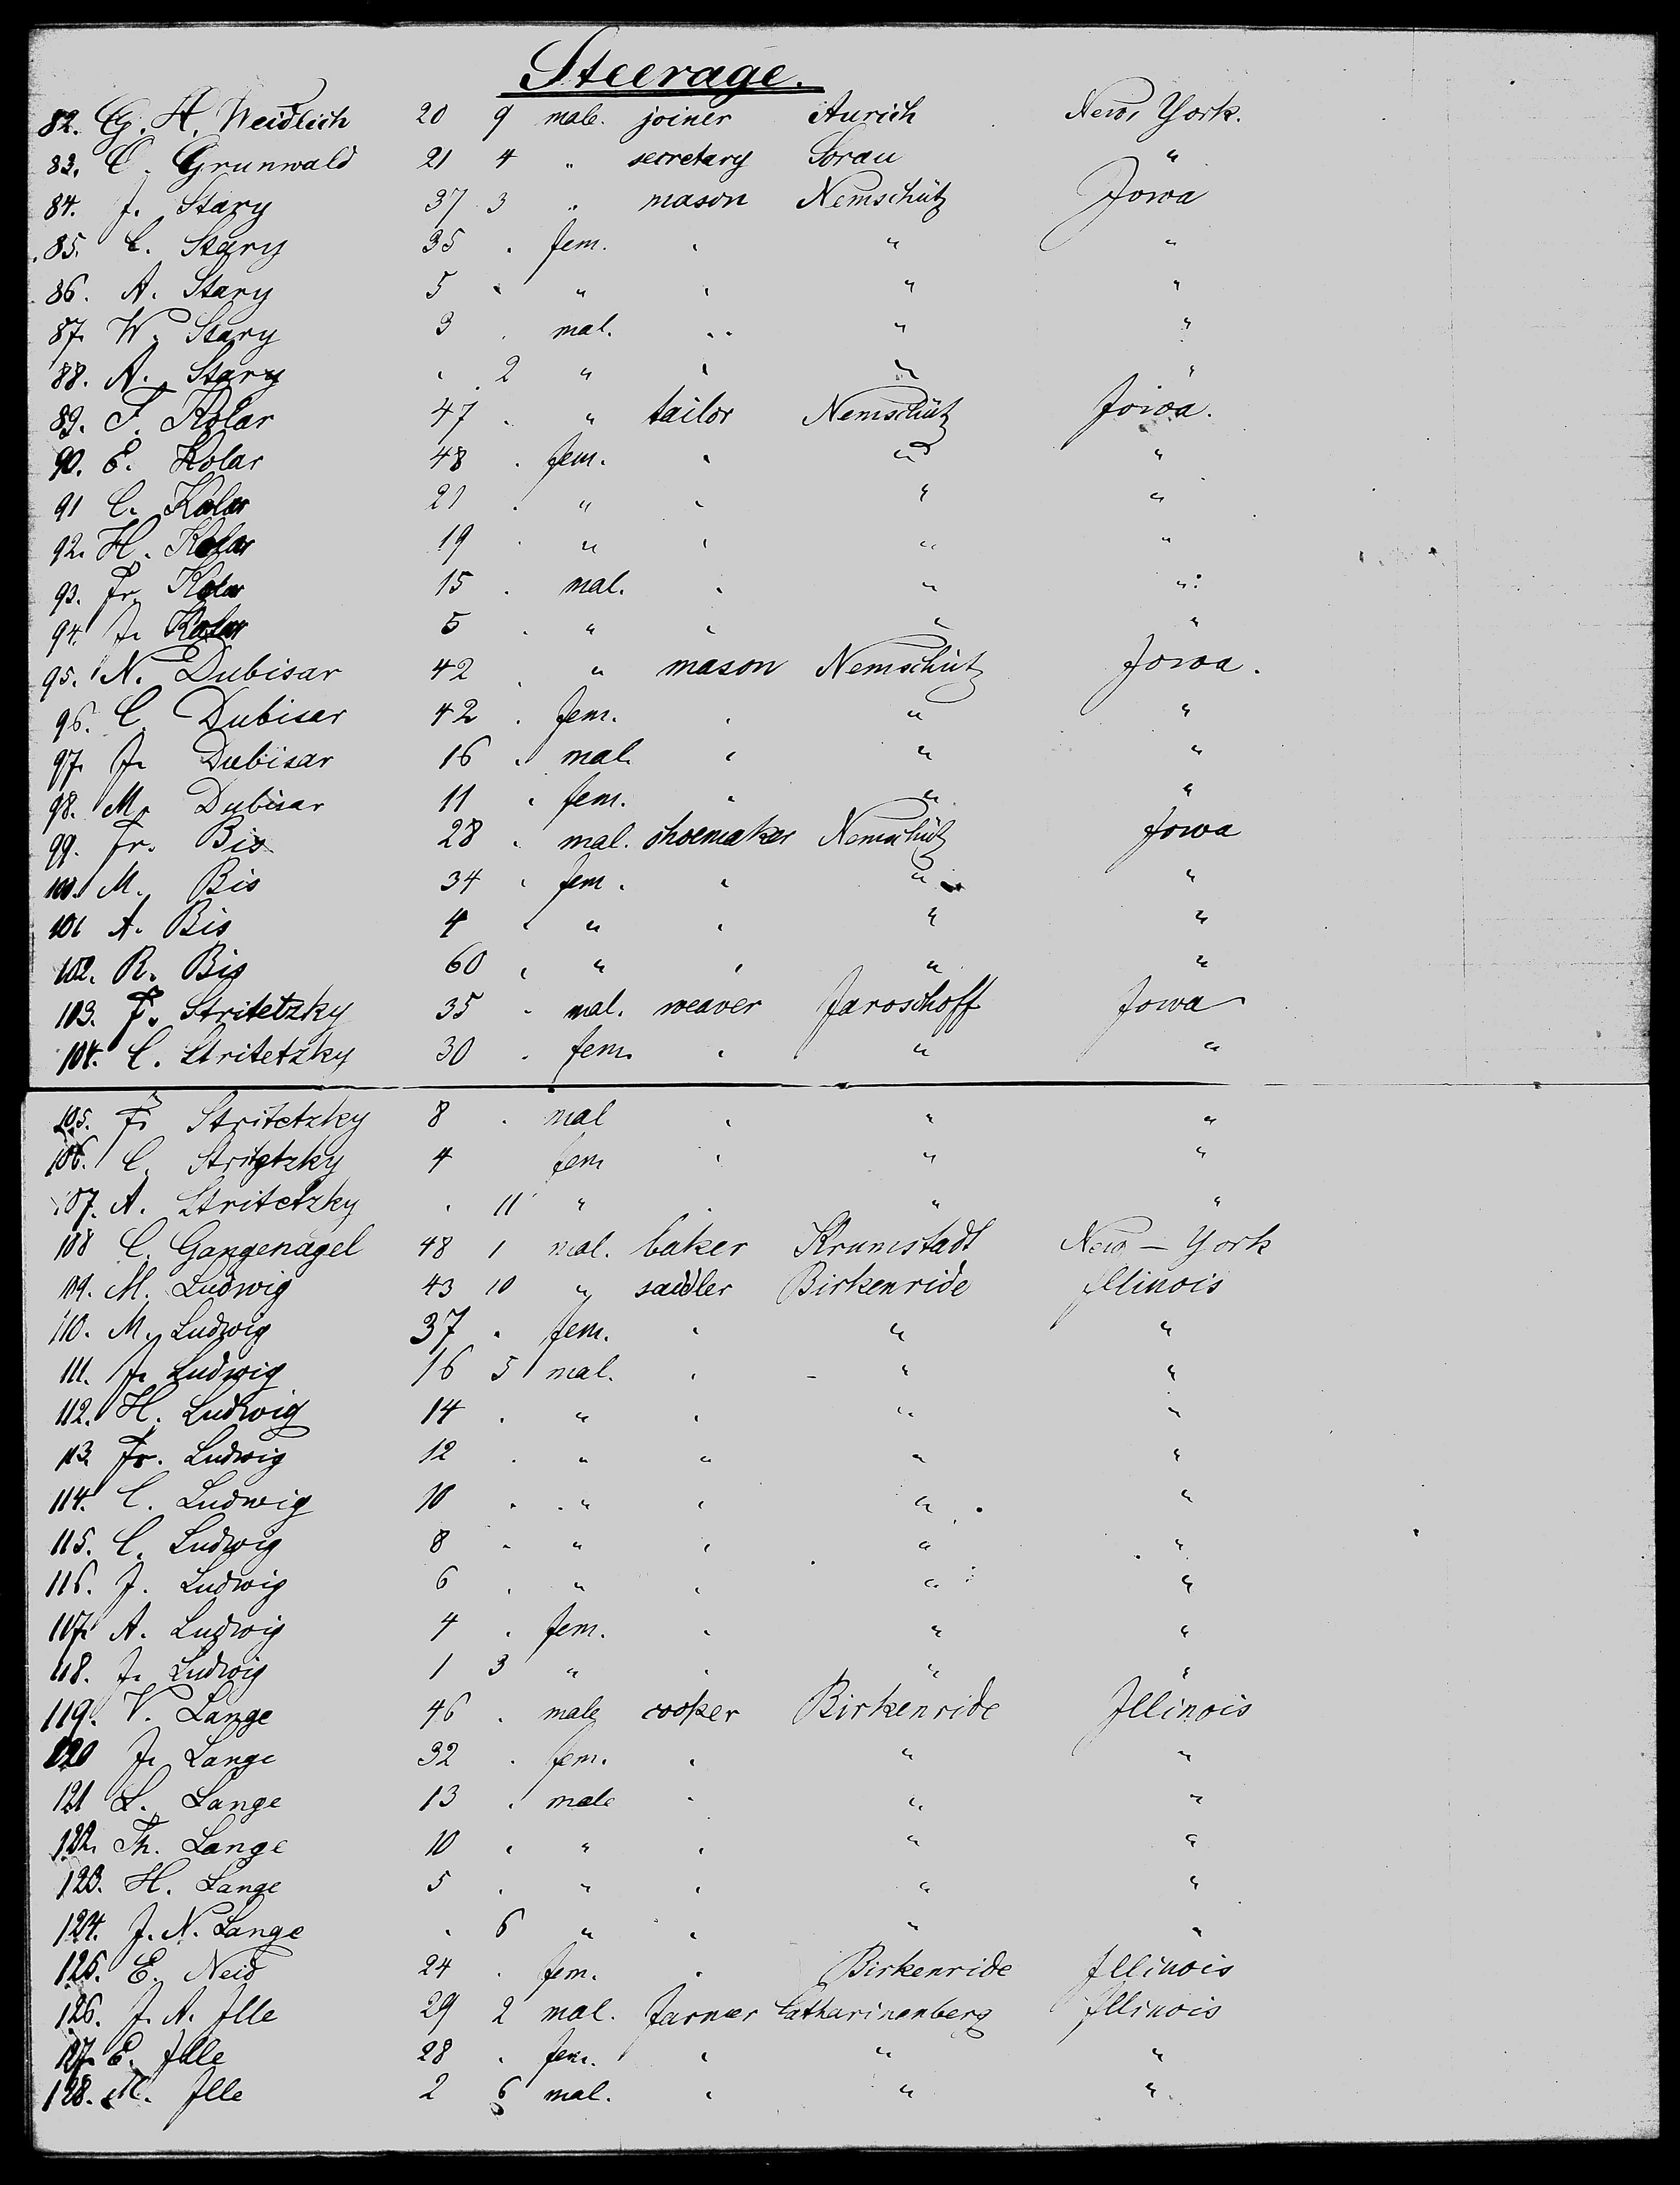 Steerage.
82. G. H. Weidlich 20 9 male. joiner Aurich New York.
83. C. Grunwald 21 4 " secretary Sorau "
84. J. Stary 37 3 " mason Nemschütz Jowa
85. C. Stary 35 . fem. " " "
86. A. Stary 5 " " " " "
87. W. Stary 3 . mal. " " "
88. A. Stary " 2 " " " "
89. F. Kolar 47 . " tailor Nemschütz Jowa.
90. E. Kolar 48 . fem. " " "
91 C. Kolar 21 . " " " "
92. H. Kolar 19 . " " " "
93. Fr. Kolar 15 . mal. " " "
94. J. Kolar 5 . " " " "
95. N. Dubisar 42 . " mason Nemschütz Jowa.
96. C. Dubisar 42 . fem. " " "
97. J. Dubisar 16 . mal. " " "
98. M. Dubisar 11 . fem. " " "
99. Fr. Bis 28 . mal. shoemaker Nemschütz Jowa
100. M. Bis 34 . fem. " " "
101 A. Bis 4 " " " " "
102. R. Bis 60 " " " " "
103. F. Stritetzky 35 . mal. weaver Jaroschoff Jowa
104. C. Stritetzky 30 . fem. " " "
105. F. Stritetzky 8 . mal " " "
106. C. Stritetzky 4 fem " " "
107. A. Stritetzky . 11 " . " "
108 C. Gangenagel 48 1 mal. baker Krumstadt New-York
109. M. Ludwig 43 10 " saddler Birkenride Illinois
110. M. Ludwig 37 . fem. " " "
111. J. Ludwig 16 5 mal. " " "
112. H. Ludwig 14 . " " " "
113. Fr. Ludwig 12 . " " " "
114. C. Ludwig 10 . " " " "
115. C. Ludwig 8 . " " " "
116. J. Ludwig 6 . " " " "
117. A. Ludwig 4 . fem. " " "
118. J. Ludwig 1 3 " " " "
119. V. Lange 46 . male cooper Birkenride Jllinois
120 J. Lange 32 . fem. " " "
121 L. Lange 13 . male " " "
122. Th. Lange 10 . " " " "
123. H. Lange 5 . " " " "
124. J. N. Lange . 6 " " " "
125. E. Neid 24 . fem. " Birkenride Jllinois
126. J. A. Jlle 29 2 mal. farmer Catharinenberg Jllinois
127. E. Jlle 28 . fem. " " "
128. M. Jlle 2 6 mal. " " "